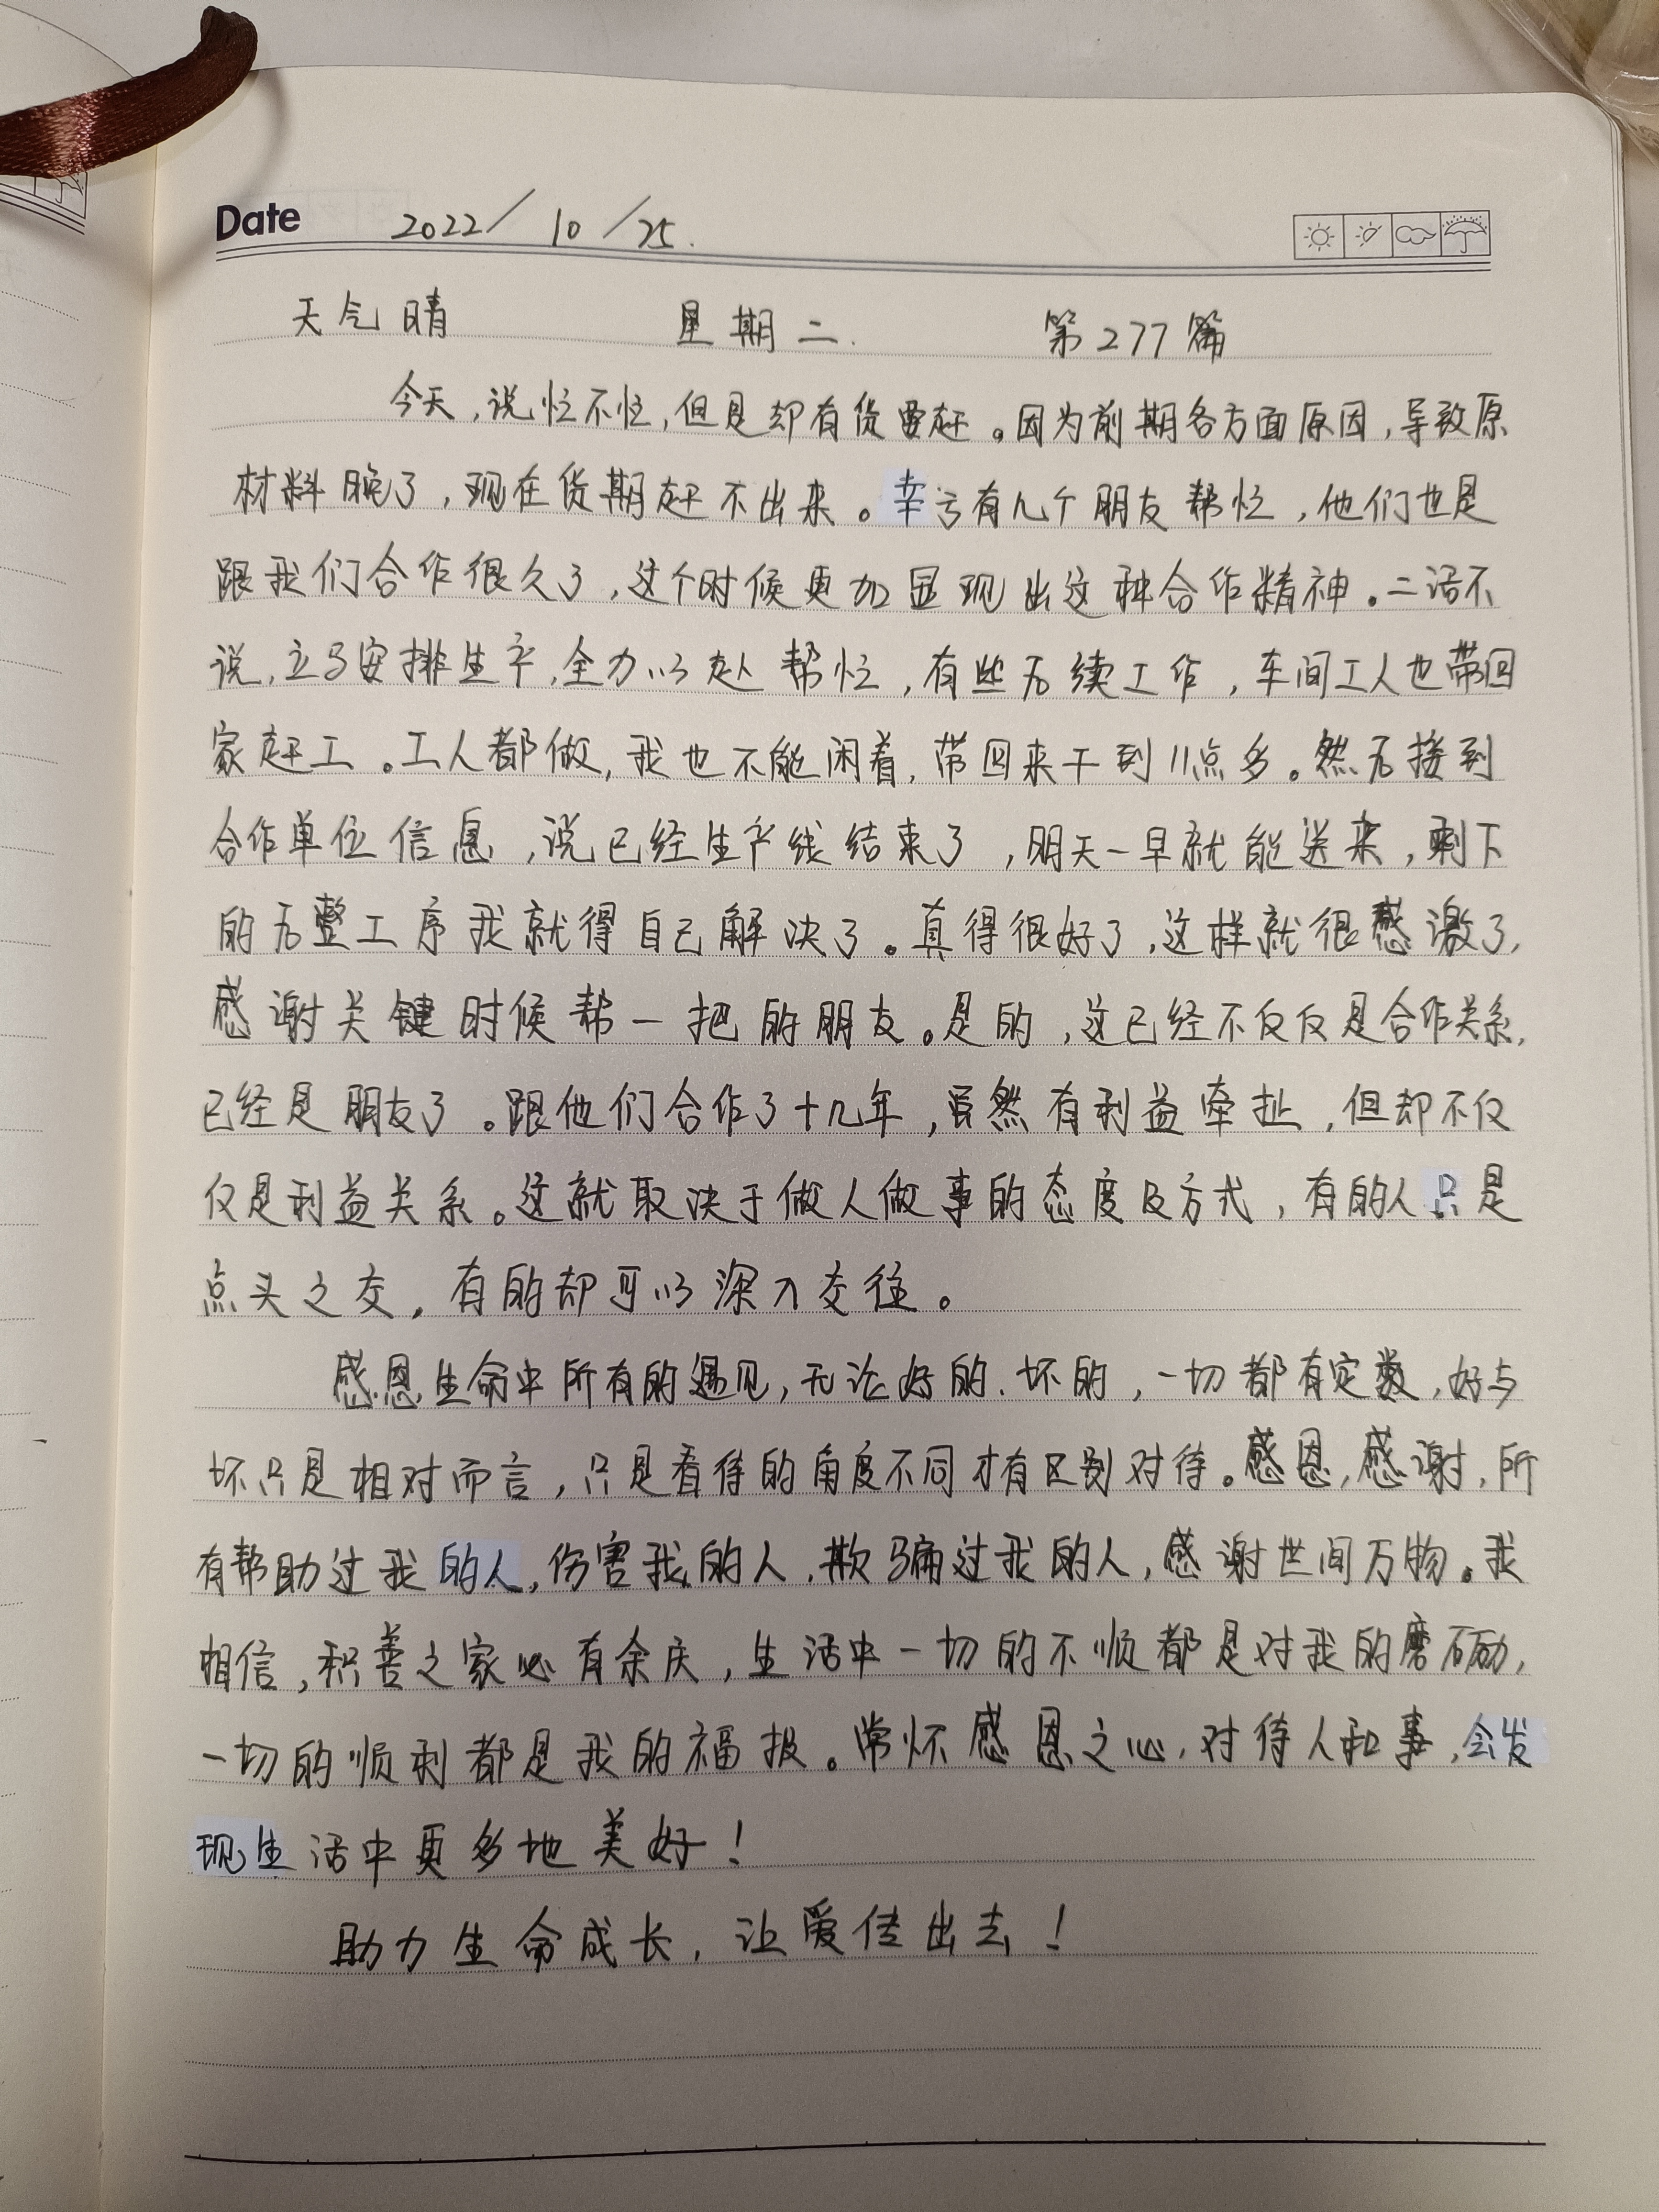 Date 2022/10/25.
天气晴 星期二. 第277篇
今天,说忙不忙,但是却有货要赶。因为前期各方面原因,导致原
材料晚了,现在货期赶不出来。幸亏有几个朋友帮忙,他们也是
跟我们合作很久了,这个时候更加显现出这种合作精神。二话不
说,立马安排生产,全力以赴帮忙,有些后续工作,车间工人也带回
家赶工。工人都做,我也不能闲着,带回来干到11点多。然后接到
合作单位信息,说已经生产线结束了,明天一早就能送来,剩下
的后整工序我就得自己解决了。真得很好了,这样就很感激了,
感谢关键时候帮一把的朋友。是的,这已经不仅仅是合作关系,
已经是朋友了。跟他们合作了十几年,虽然有利益牵扯,但却不仅
仅是利益关系。这就取决于做人做事的态度及方式,有的人只是
点头之交,有的却可以深入交往。
感恩生命中所有的遇见,无论好的、坏的,一切都有定数,好与
坏只是相对而言,只是看待的角度不同才有区别对待。感恩,感谢,所
有帮助过我的人,伤害我的人,欺骗过我的人,感谢世间万物。我
相信,积善之家必有余庆,生活中一切的不顺都是对我的磨砺,
一切的顺利都是我的福报。常怀感恩之心,对待人和事,会发
现生活中更多地美好!
助力生命成长,让爱传出去!